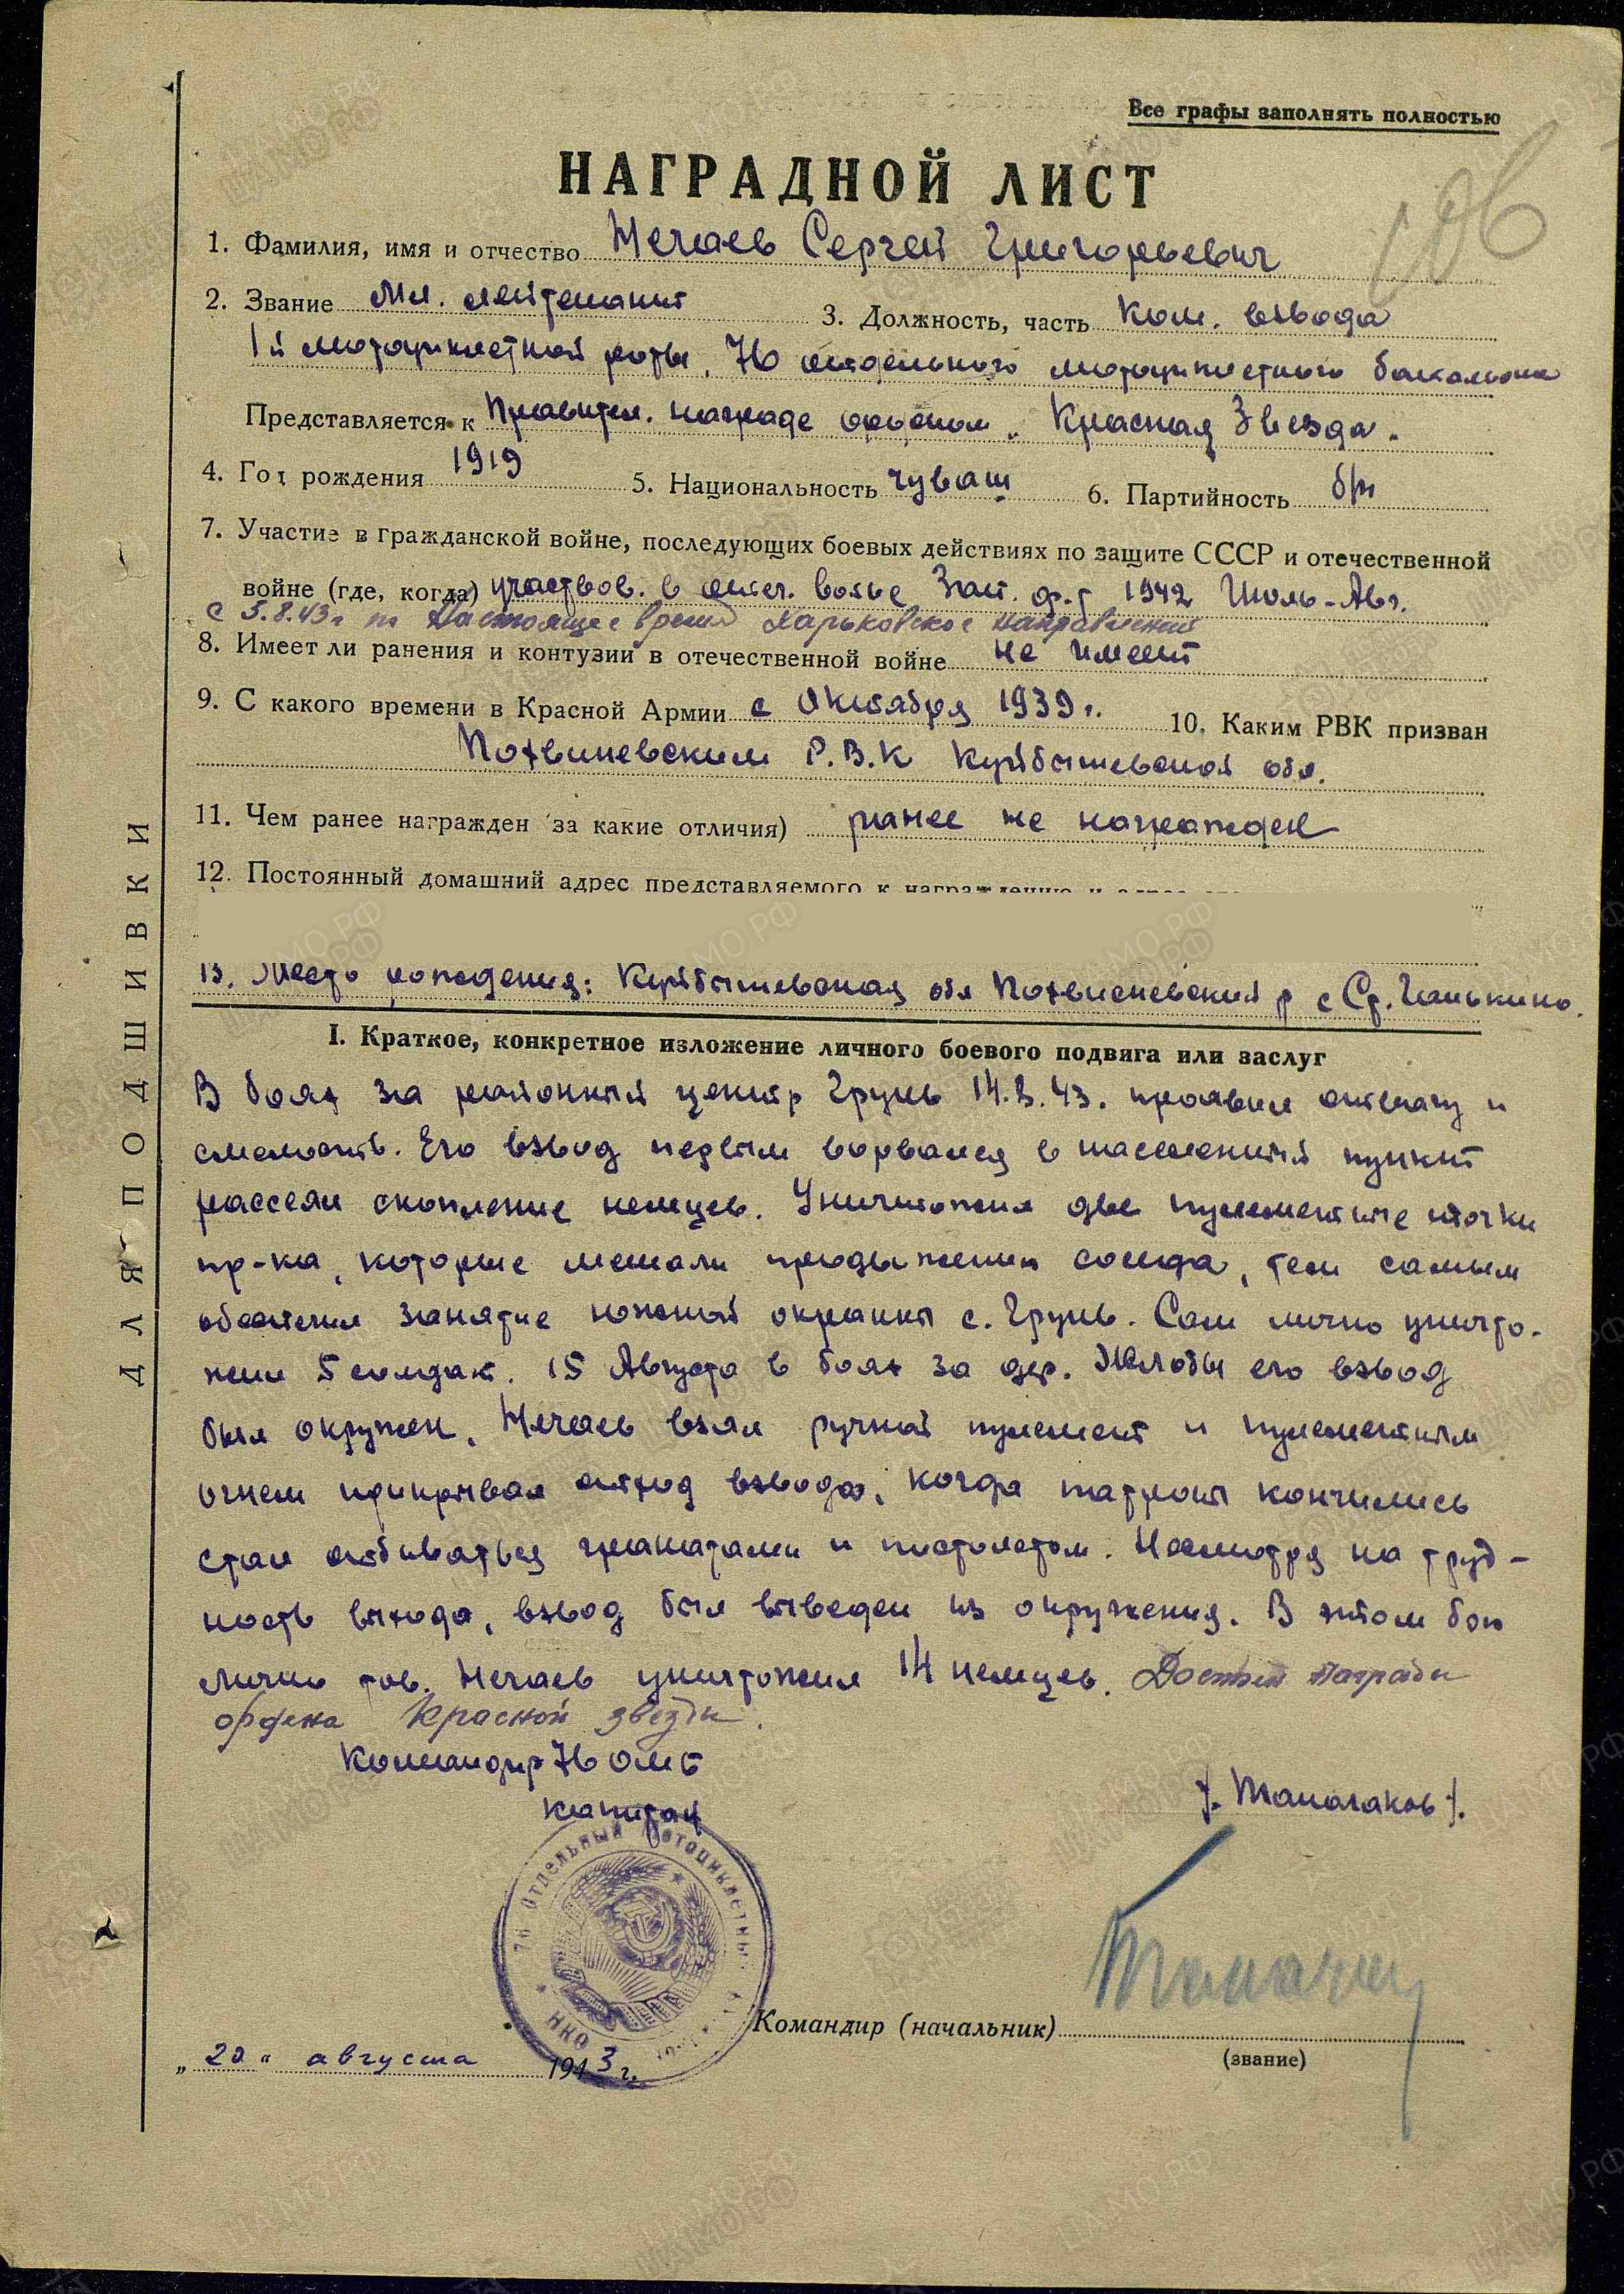 Все графы заполнять полностью
106
НАГРАДНОЙ ЛИСТ
1. Фамилия, имя и отчество Нечаев Сергей Григорьевич
2. Звание Мл. лейтенант 3. Должность, часть Ком. взвода
1й мотоциклетной роты, 76 отдельного мотоциклетного батальона
Представляется к Правител. награде орденом „Красная Звезда".
4. Год рождения 1919 5. Национальность чуваш 6. Партийность б/п
7. Участие в гражданской войне, последующих боевых действиях по защите СССР и отечественной
войне (где, когда) участвов. в отеч. войне Зап. ф-т 1942 Июль-Авг.
с 5.8.43г по Настоящее время Харьковское направление
8. Имеет ли ранения и контузии в отечественной войне не имеет
9. С какого времени в Красной Армии с Октября 1939г. 10. Каким РВК призван
Похвиневским Р.В.К Куйбышевской обл.
11. Чем ранее награжден за какие отличия) ранее не награжден
12. Постоянный домашний адрес представляемого к награждению и адрес
13. Место рождения: Куйбышевская обл Похвисневский р с Ср. Ганькино.
I. Краткое, конкретное изложение личного боевого подвига или заслуг
В боях за районный центр Грунь 14.8.43. проявил отвагу и
смелость. Его взвод первым ворвался в населенный пункт
рассеял скопление немцев. Уничтожил две пулеметные точки
пр-ка, которые мешали продвижению взвода, тем самым
обеспечил занятие южной окраины с. Грунь. Сам лично уничто-
жил 5 солдат. 15 Августа в боях за дер. его взвод
был окружен, Нечаев взял ручной пулемет и пулеметным
огнем прикрывал отход взвода, когда патроны кончились
стал отбиваться гранатами и пистолетом. Несмотря на труд-
ность выхода, взвод был выведен из окружения. В этом бою
лично тов. Нечаев уничтожил 14 немцев. Достоен награды
ордена Красной звезды.
Командир 76 ОМЦБ
капитан
76 Отдельный Мотоциклетный
НКО
Командир (начальник)
(звание)
„20" августа 1943 г.
ДЛЯ ПОДШИВКИ
ЦАМО РФ